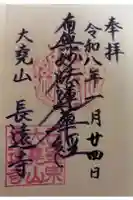 奉拝
令和八年一月廿四日
南無妙法蓮華経
大堯山
長遠寺